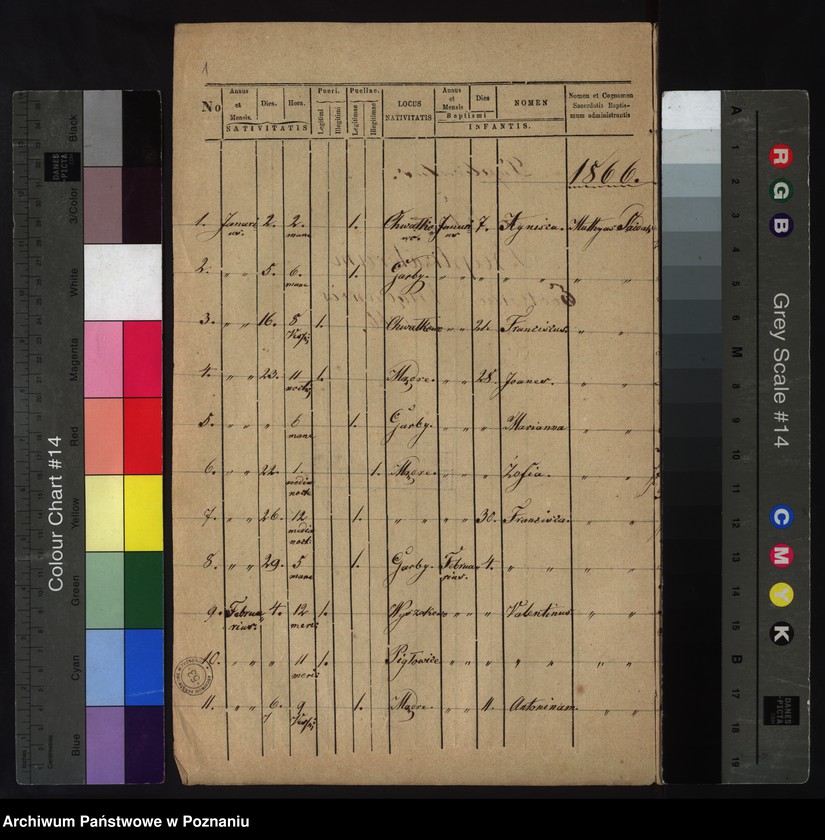 1
No
Annus et Mensis. Dies. Hora. Pueri. Puellae. LOCUS NATIVITATIS Annus et Mensis Dies NOMEN Nomen et Cognomen Sacerdotis Baptismum administrantis
Legitimi Illegitimi Legitimae Illegitimae Baptismi
NATIVITATIS INFANTIS.
1866.
1. Januarius. 2. 2. mane 1. Januarius 7. Agnisca. Mathyas
2. " " 5. 6. mane 1. Garby. " " " " " "
3. " " 16. 8 1. " " 21. Franciscus. " "
4. " " 23. 11 1. Mądre. " " 28. Joanes. " "
5. " " " 6 mane 1. Garby. " " " Marianna " "
6. " " 22. 1. media nocte 1. Mądre. " " " Zofia. " "
7. " " 26. 12 media nocte 1. " " " " 30. Francisca. " "
8. " " 29. 5 mane 1. Garby. Februarius. 4. " " " "
9. Februarius. 4. 12 meri 1. " " " Valentinus " "
10. " " " 11 meri 1. Pigłowice " " " " " " "
11. " " 6. 9 1. Mądre. " " 11. Antoninam. " "
Colour Chart #14
Blue Cyan Green Yellow Red Magenta White 3/Color Black
DANES PICTA
Grey Scale #14
A 1 2 3 4 5 6 M 8 9 10 11 12 13 14 15 B 17 18 19
R
G
B
C
M
Y
K
DANES PICTA
Archiwum Państwowe w Poznaniu